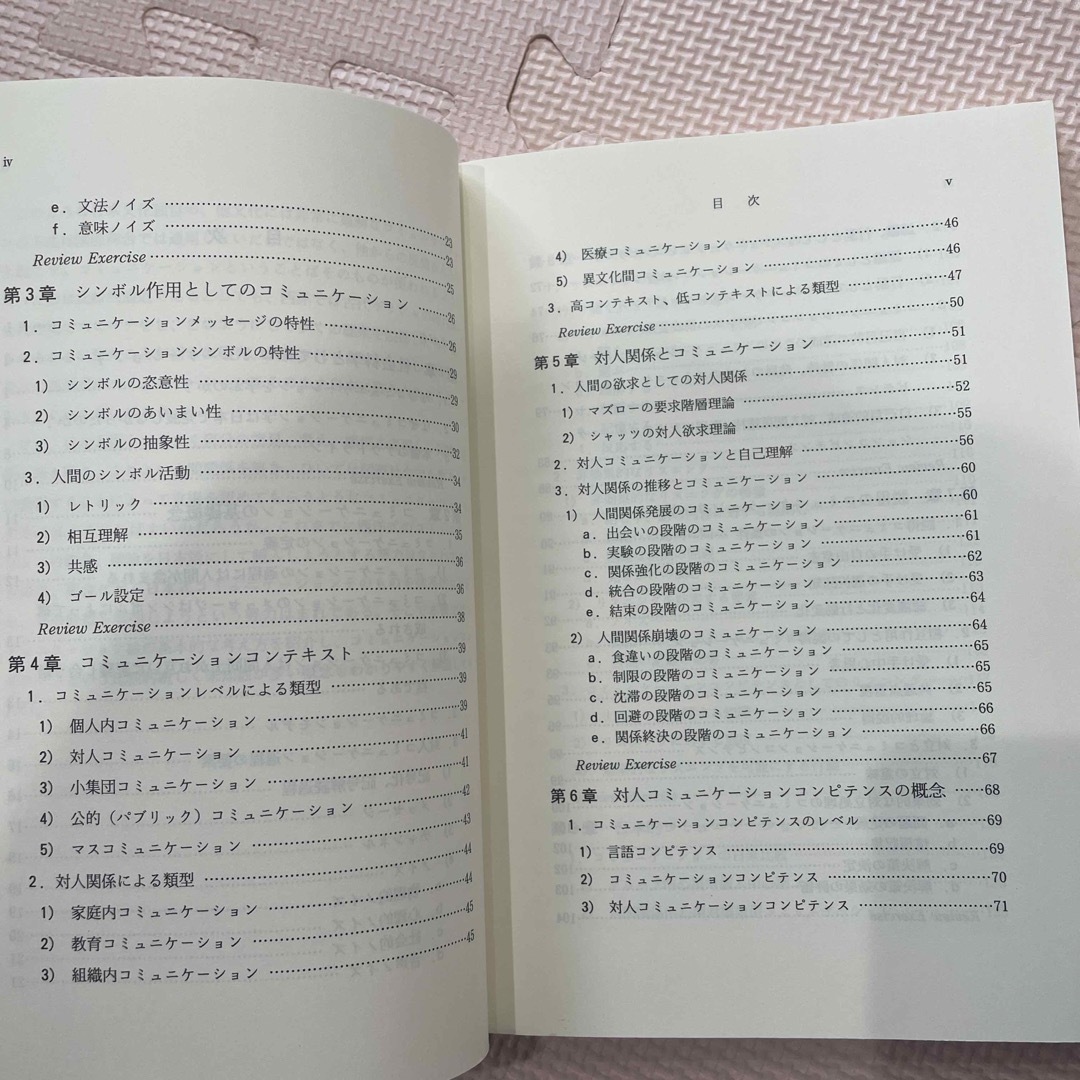 iv
e．文法ノイズ ……………………23
f．意味ノイズ ……………………23
Review Exercise……………………25
第3章 シンボル作用としてのコミュニケーション ……26
1．コミュニケーションメッセージの特性 ……………26
2．コミュニケーションシンボルの特性 ……………29
1) シンボルの恣意性 ……………………29
2) シンボルのあいまい性 ……………………30
3) シンボルの抽象性 ……………………32
3．人間のシンボル活動 ……………………34
1) レトリック ……………………34
2) 相互理解 ……………………35
3) 共感 ……………………36
4) ゴール設定 ……………………36
Review Exercise ……………………38
第4章 コミュニケーションコンテキスト ……………39
1．コミュニケーションレベルによる類型 ……………39
1) 個人内コミュニケーション ……………………39
2) 対人コミュニケーション ……………………41
3) 小集団コミュニケーション ……………………41
4) 公的（パブリック）コミュニケーション ……………42
5) マスコミュニケーション ……………………43
2．対人関係による類型 ……………………44
1) 家庭内コミュニケーション ……………………44
2) 教育コミュニケーション ……………………45
3) 組織内コミュニケーション ……………………45
目 次 v
4) 医療コミュニケーション ……………………46
5) 異文化間コミュニケーション ……………………46
3．高コンテキスト、低コンテキストによる類型 ……………47
Review Exercise ……………………50
第5章 対人関係とコミュニケーション ……………51
1．人間の欲求としての対人関係 ……………………51
1) マズローの要求階層理論 ……………………52
2) シャッツの対人欲求理論 ……………………55
2．対人コミュニケーションと自己理解 ……………56
3．対人関係の推移とコミュニケーション ……………60
1) 人間関係発展のコミュニケーション ……………60
a．出会いの段階のコミュニケーション ……………61
b．実験の段階のコミュニケーション ……………61
c．関係強化の段階のコミュニケーション ……………62
d．統合の段階のコミュニケーション ……………63
e．結束の段階のコミュニケーション ……………64
2) 人間関係崩壊のコミュニケーション ……………64
a．食違いの段階のコミュニケーション ……………65
b．制限の段階のコミュニケーション ……………65
c．沈滞の段階のコミュニケーション ……………65
d．回避の段階のコミュニケーション ……………66
e．関係終決の段階のコミュニケーション ……………66
Review Exercise……………………67
第6章 対人コミュニケーションコンピテンスの概念 ……68
1．コミュニケーションコンピテンスのレベル ……………69
1) 言語コンピテンス ……………………69
2) コミュニケーションコンピテンス ……………70
3) 対人コミュニケーションコンピテンス ……………71